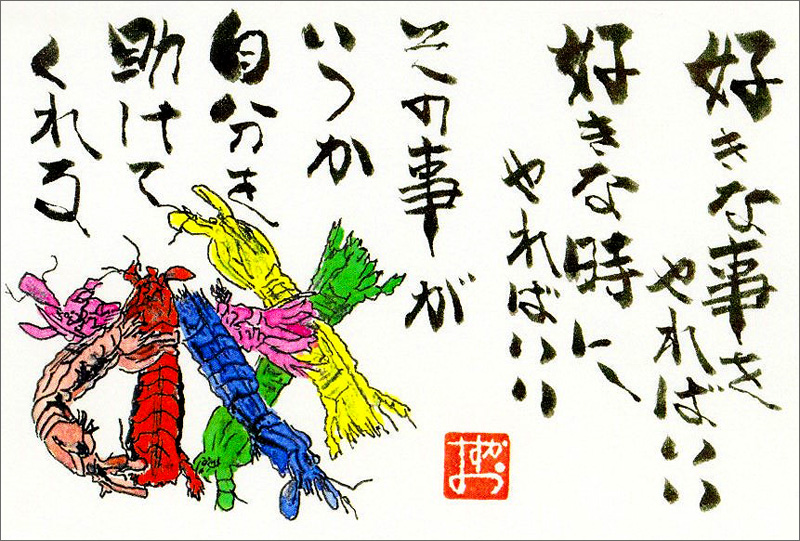 好きな事を
やればいい
好きな時に
やればいい
その事が
いつか
自分を
助けて
くれる